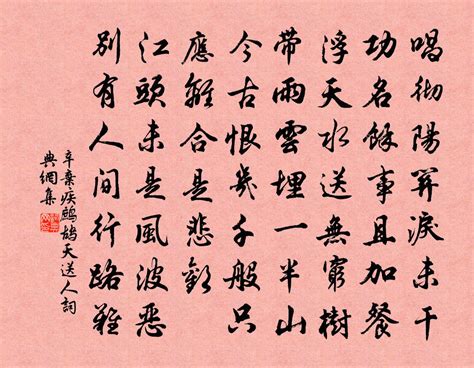 唱徹陽關淚未干
功名餘事且加餐
浮天水送無窮樹
帶雨雲埋一半山
今古恨幾千般只
應離合是悲歡
江頭未是風波惡
別有人間行路難
辛棄疾鷓鴣天送人詞
典網集